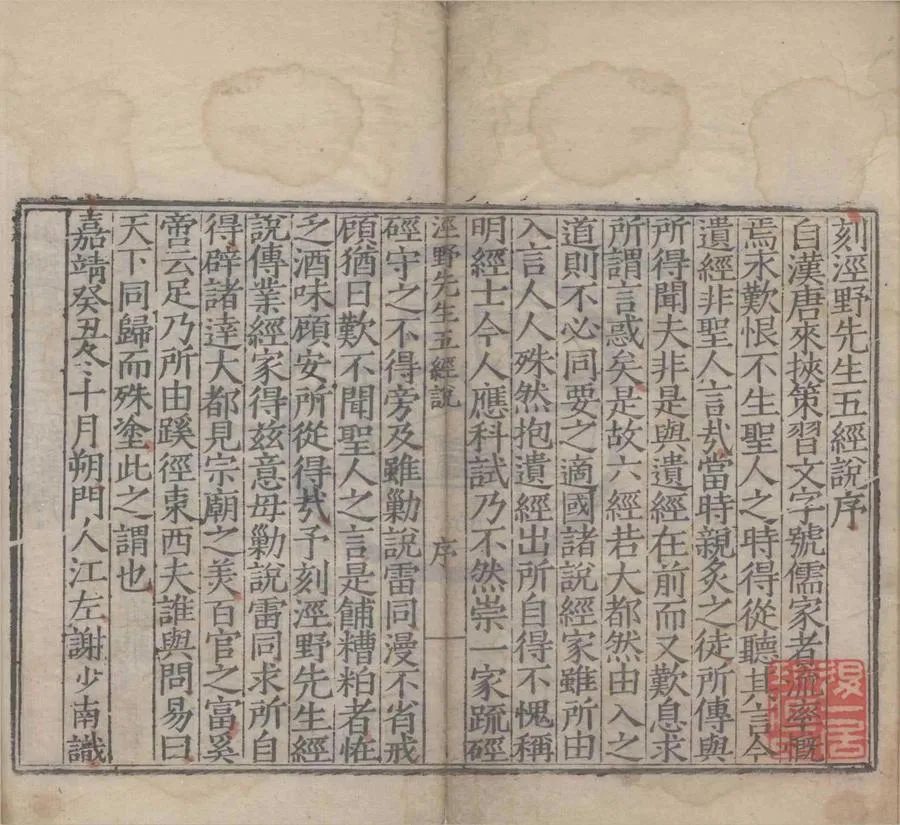 刻涇野先生五經說序
自漢唐來挾策習文字號儒家者流率慨
焉永歎恨不生聖人之時得從聽其言今
遺經非聖人言㢤當時親炙之徒所傳與
所得聞夫非是與遺經在前而又歎息求
所謂言惑矣是故六經若大都然由入之
道則不必同要之適國諸說經家雖所由
入言人人殊然抱遺經出所自得不愧稱
明經士今人應科試乃不然崇一家疏硜
涇野先生五經說 序 一
硜守之不得旁及雖勦說雷同漫不省戒
頋猶日歎不聞聖人之言是餔糟粕者恠
乏酒味頋安所從得㢤予刻涇野先生經
說傳業經家得兹意毋勦說雷同求所自
得辟諸逹大都見宗廟之美百官之富奚
啻云足乃所由蹊徑東西夫誰與問易曰
天下同歸而殊塗此之謂也
嘉靖癸丑冬十月朔門人江左謝少南識